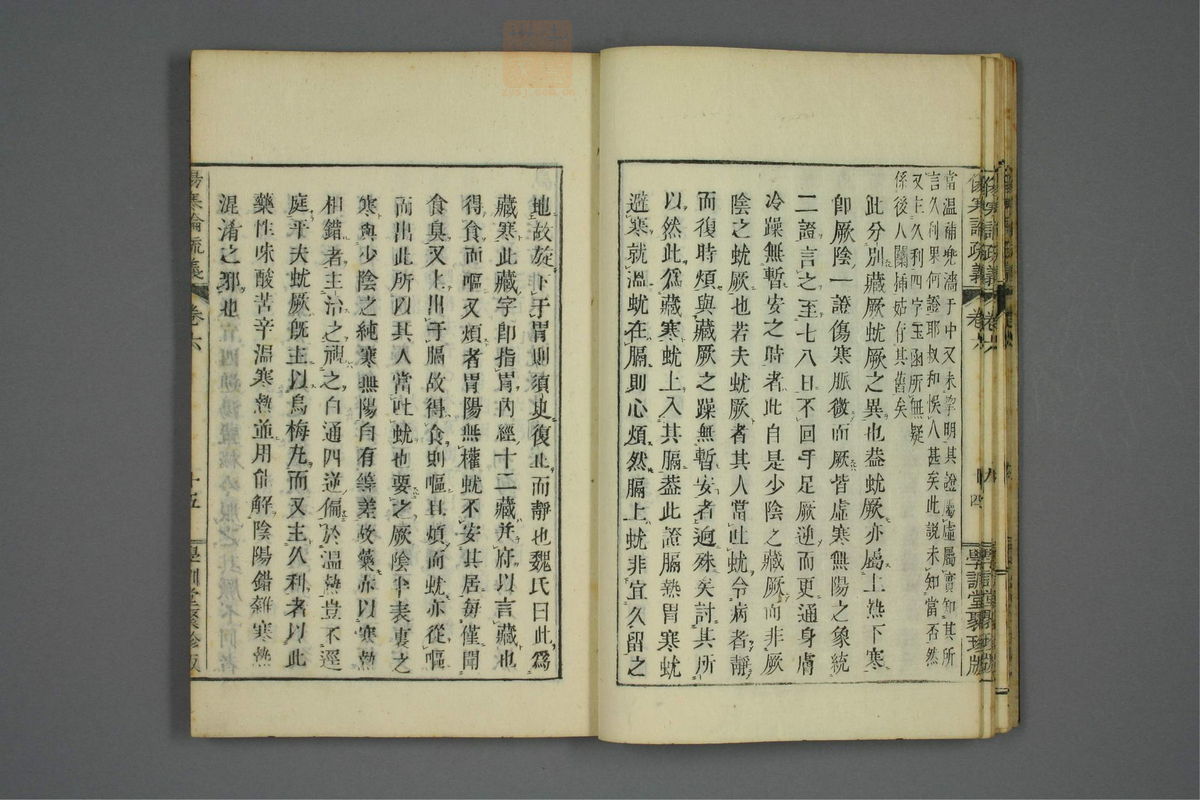 傷寒論疏義 卷六 十四 學訓堂聚珍版
當溫補
于中又未
明其證屬虛屬實如其所
言久利果何證耶叔和悞入甚矣此說未知當否然
又主久利四字玉函所無疑
係後人
姑存其舊矣
此分別藏厥蚘厥之異也葢蚘厥亦屬上熱下寒
卽厥陰一證傷寒脈微而厥皆虛寒無陽之象統
二證言之至七八日不回手足厥逆而更通身膚
冷躁無暫安之時者此自是少陰之藏厥而非厥
陰之蚘厥也若夫蚘厥者其人當吐蚘令病者靜
而復時煩與藏厥之躁無暫安者逈殊矣討其所
以然此爲藏寒蚘上入其膈葢此證膈熱胃寒蚘
避寒就溫蚘在膈則心煩然膈上蚘非宜久留之
地故旋下于胃則須臾復止而靜也魏氏曰此爲
藏寒此藏字卽指胃內經十二藏并府以言藏也
得食而嘔又煩者胃陽無權蚘不安其居每僅聞
食臭又上出于膈故得食則嘔且煩而蚘亦從嘔
而出此所以其人當吐蚘也要之厥陰半表裏之
寒與少陰之純寒無陽自有等差故藥亦以寒熱
相錯者主治之視之白通四逆偏於溫熱豈不逕
庭乎夫蚘厥旣主以烏梅丸而又主久利者以此
藥性味酸苦辛溫寒熱並用能解陰陽錯雜寒熱
混淆之邪也
傷寒論疏義 卷六 十五 學訓堂聚珍版